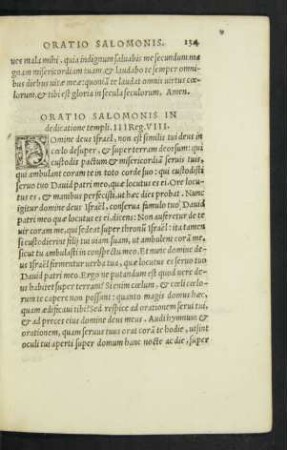 ORATIO SALOMONIS. 134
ues mala mihi. quia indignum saluabis me secundum ma
gnam misericordiam tuam, & laudabo te semper omni
bus diebus uitæ meæ: quoniã te laudat omnis uirtus cœ
lorum, & tibi est gloria in secula seculorum. Amen.
ORATIO SALOMONIS IN
dedicatione templi. III Reg. VIII.
DOmine deus Israel, non est similis tui deus in
cœlo desuper, & super terram deorsum: qui
custodis pactum & misericordiã seruis tuis,
qui ambulant coram te in toto corde suo: qui custodisti
seruo tuo Dauid patri meo, quæ locutus es ei. Ore locu
tus es, & manibus perfecisti, ut hæc dies probat. Nunc
igitur domine deus Israel, conserua famulo tuo Dauid
patri meo quæ locutus es ei, dicens: Non auferetur de te
uir coram me, qui sedeat super thronũ Israel: ita tamen
si custodierint filij tui uiam suam, ut ambulent corã me,
sicut tu ambulasti in conspectu meo. Et nunc domine de
us Israel firmentur uerba tua, quæ locutus es seruo tuo
Dauid patri meo. Ergo ne putandum est quod uere de
us habitet super terram? Si enim cœlum, & cœli cœlo
rum te capere non possunt: quanto magis domus hæc,
quam ædificaui tibi? Sed respice ad orationem serui tui,
& ad preces eius domine deus meus. Audi hymnum &
orationem, quam seruus tuus orat corã te hodie, ut sint
oculi tui aperti super domum hanc nocte ac die, super